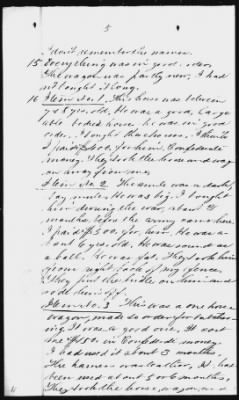 5
I don't remember the names.
15 Everything was in good order.
The wagon was partly new, I had
not bought it long.
16 Item No. 1. This horse was between
7 & 8 yrs old. He was a good, large
able bodied horse he was in good
order. I bought that horse. I think
I paid $400, for him. Confederate
money. They took the horse and wag-
on away from me.
Item No. 2 The mule was a dark,
bay mule. He was big. I bought
him during the war, about
months, before the army came here.
I paid $500, for, him. He was a-
bout 6 yrs old. He was round as
a ball. He was fat. They took him
from right back of my fence.
They put the bridle on him and
rode him off.
Item No. 3 This was a one horse
wagon, made to order for
It was a good one. It cost
me $150. in Confed. money.
I had used it about 3 months.
The harness was leather, It had
been used about 5 or 6 months,
They took the horse, wagon, and